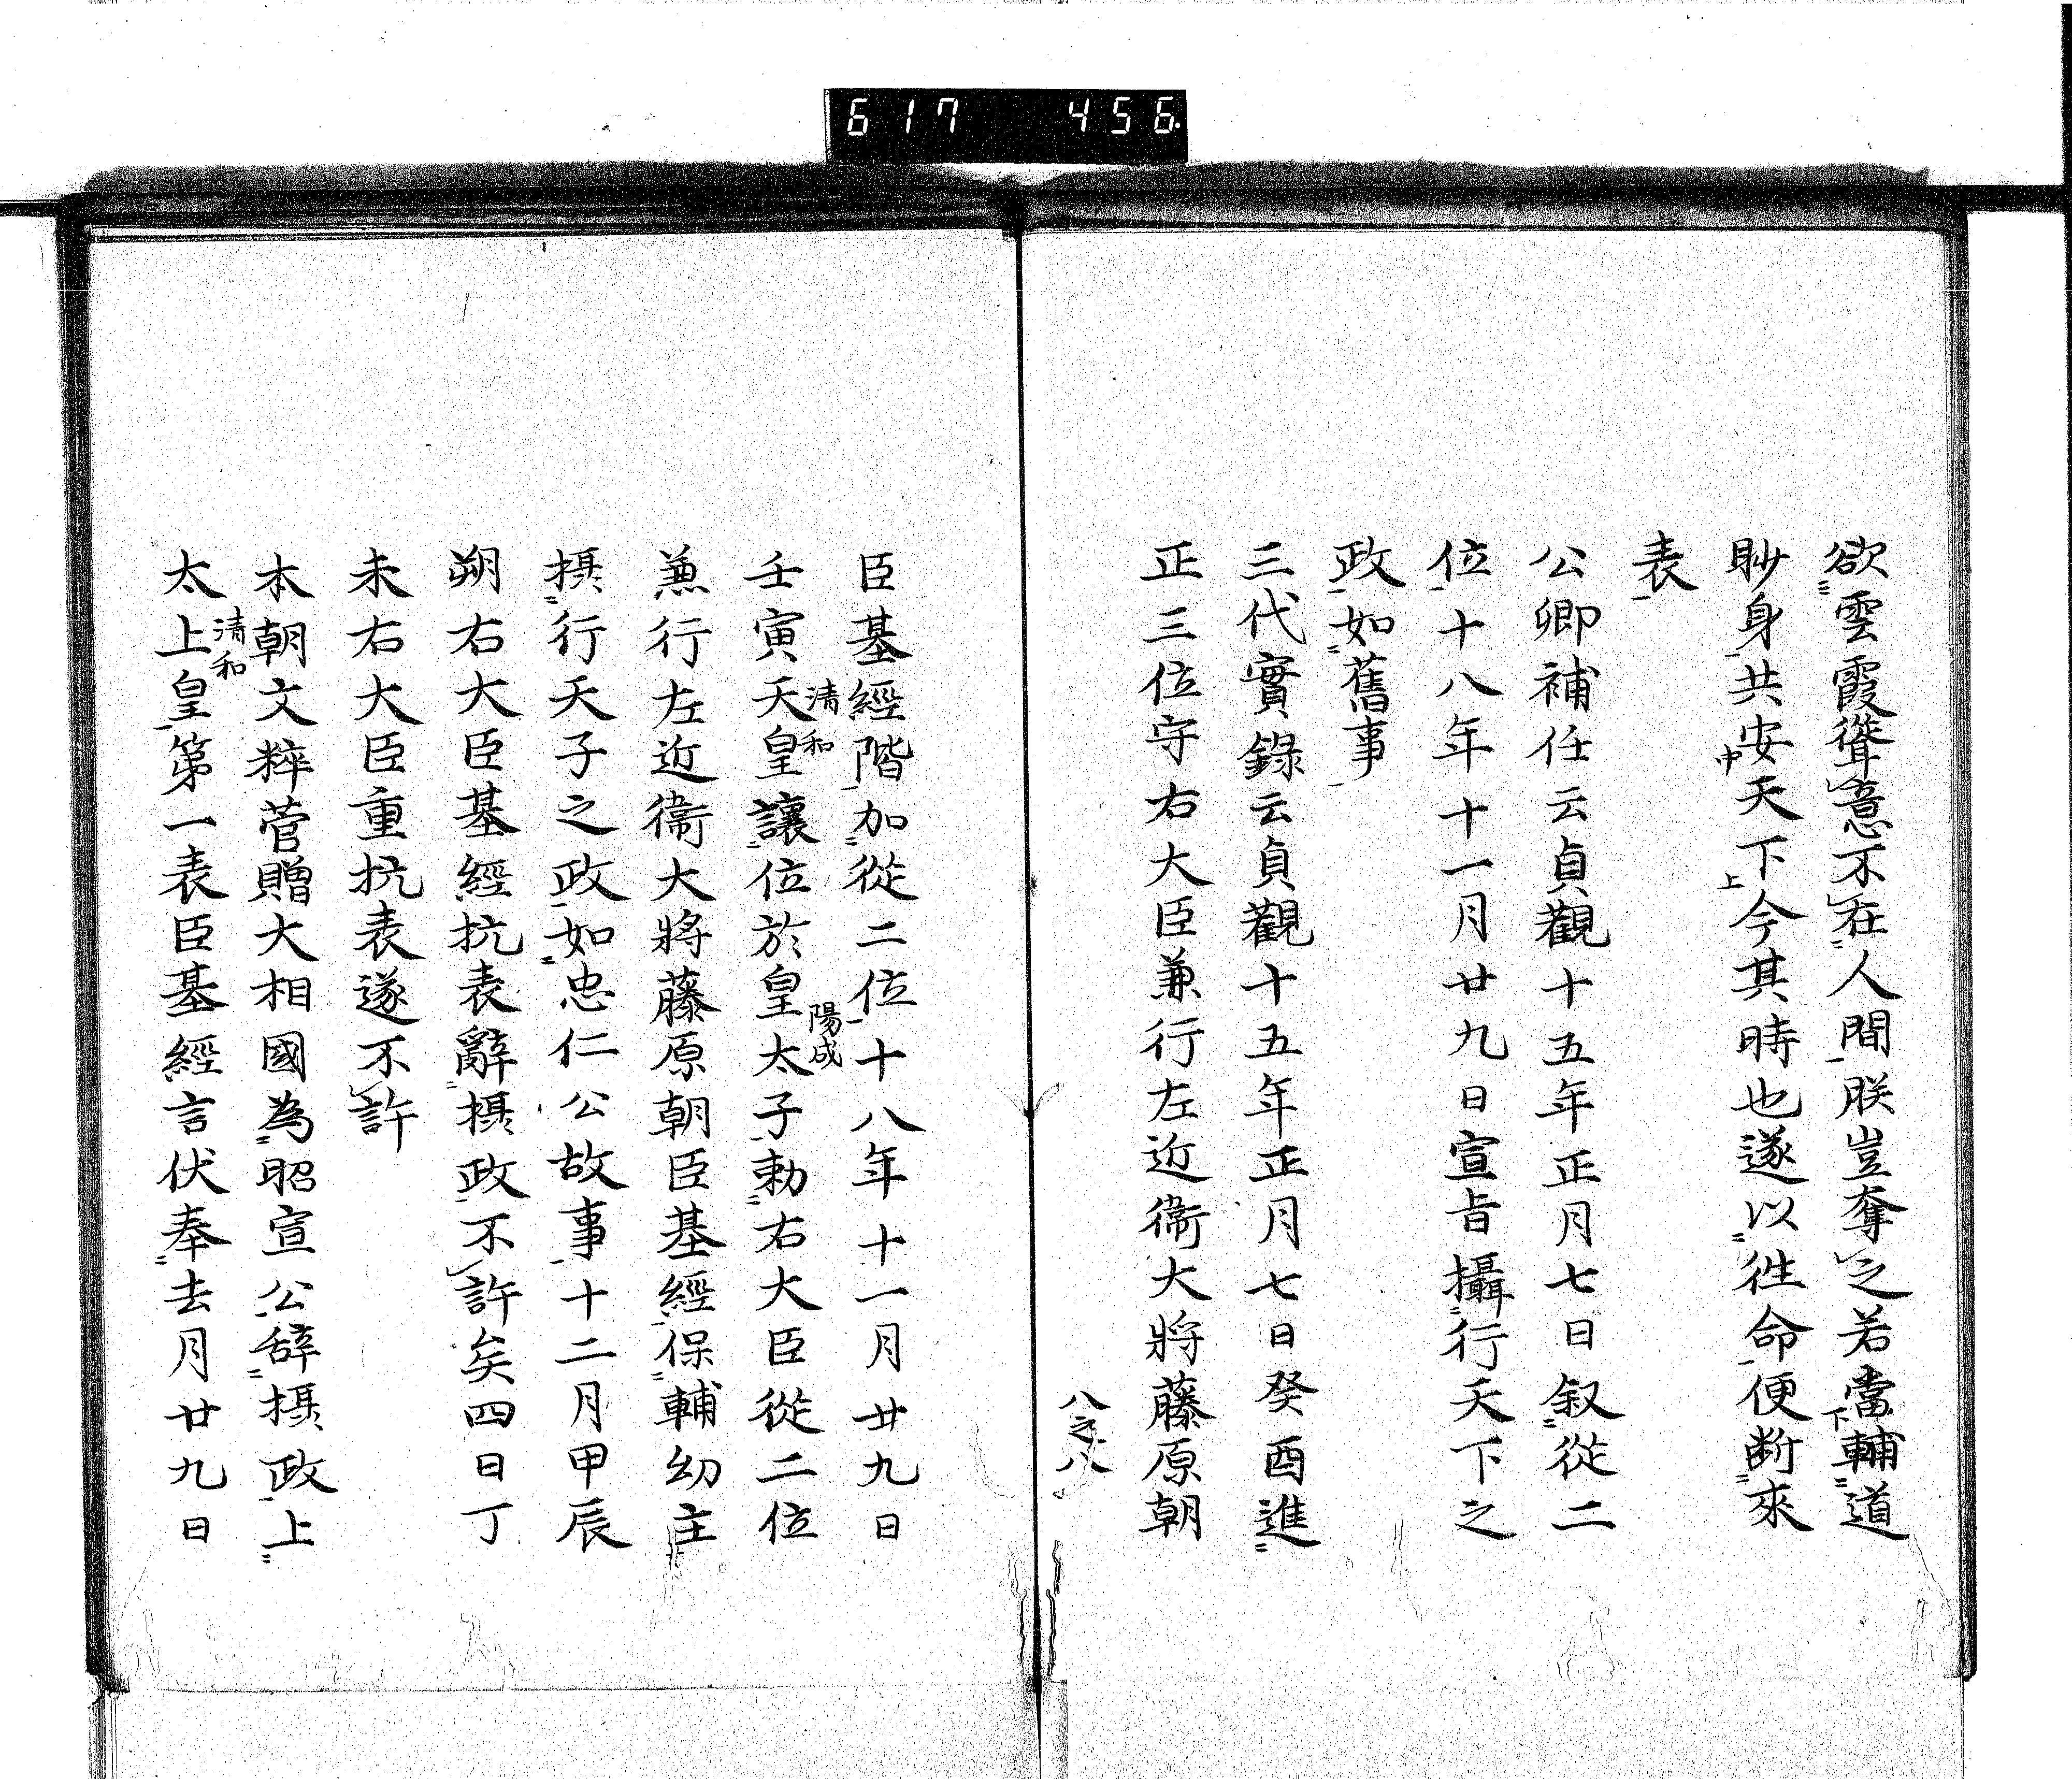 617 456
欲雲霞聳意不在人間朕豈奪之若當輔道
眇身共安天下今其時也遂以徃命便断來
表
公卿補任云貞觀十五年正月七日叙從二
位十八年十一月廿九日宣旨攝行天下之
政如舊事
三代實錄云貞觀十五年正月七日癸酉進
正三位守右大臣兼行左近衞大將藤原朝
八之八
臣基經階加從二位十八年十一月廿九日
壬寅天皇讓位於皇太子勅右大臣從二位
清和
陽成
兼行左近衞大將藤原朝臣基經保輔幼主
摂行天子之政如忠仁公故事十二月甲辰
朔右大臣基經抗表辭摂政不許矣四日丁
未右大臣重抗表遂不許
本朝文粹菅贈大相國為昭宣公辞摂政上
太上皇第一表臣基經言伏奉去月廿九日
清和